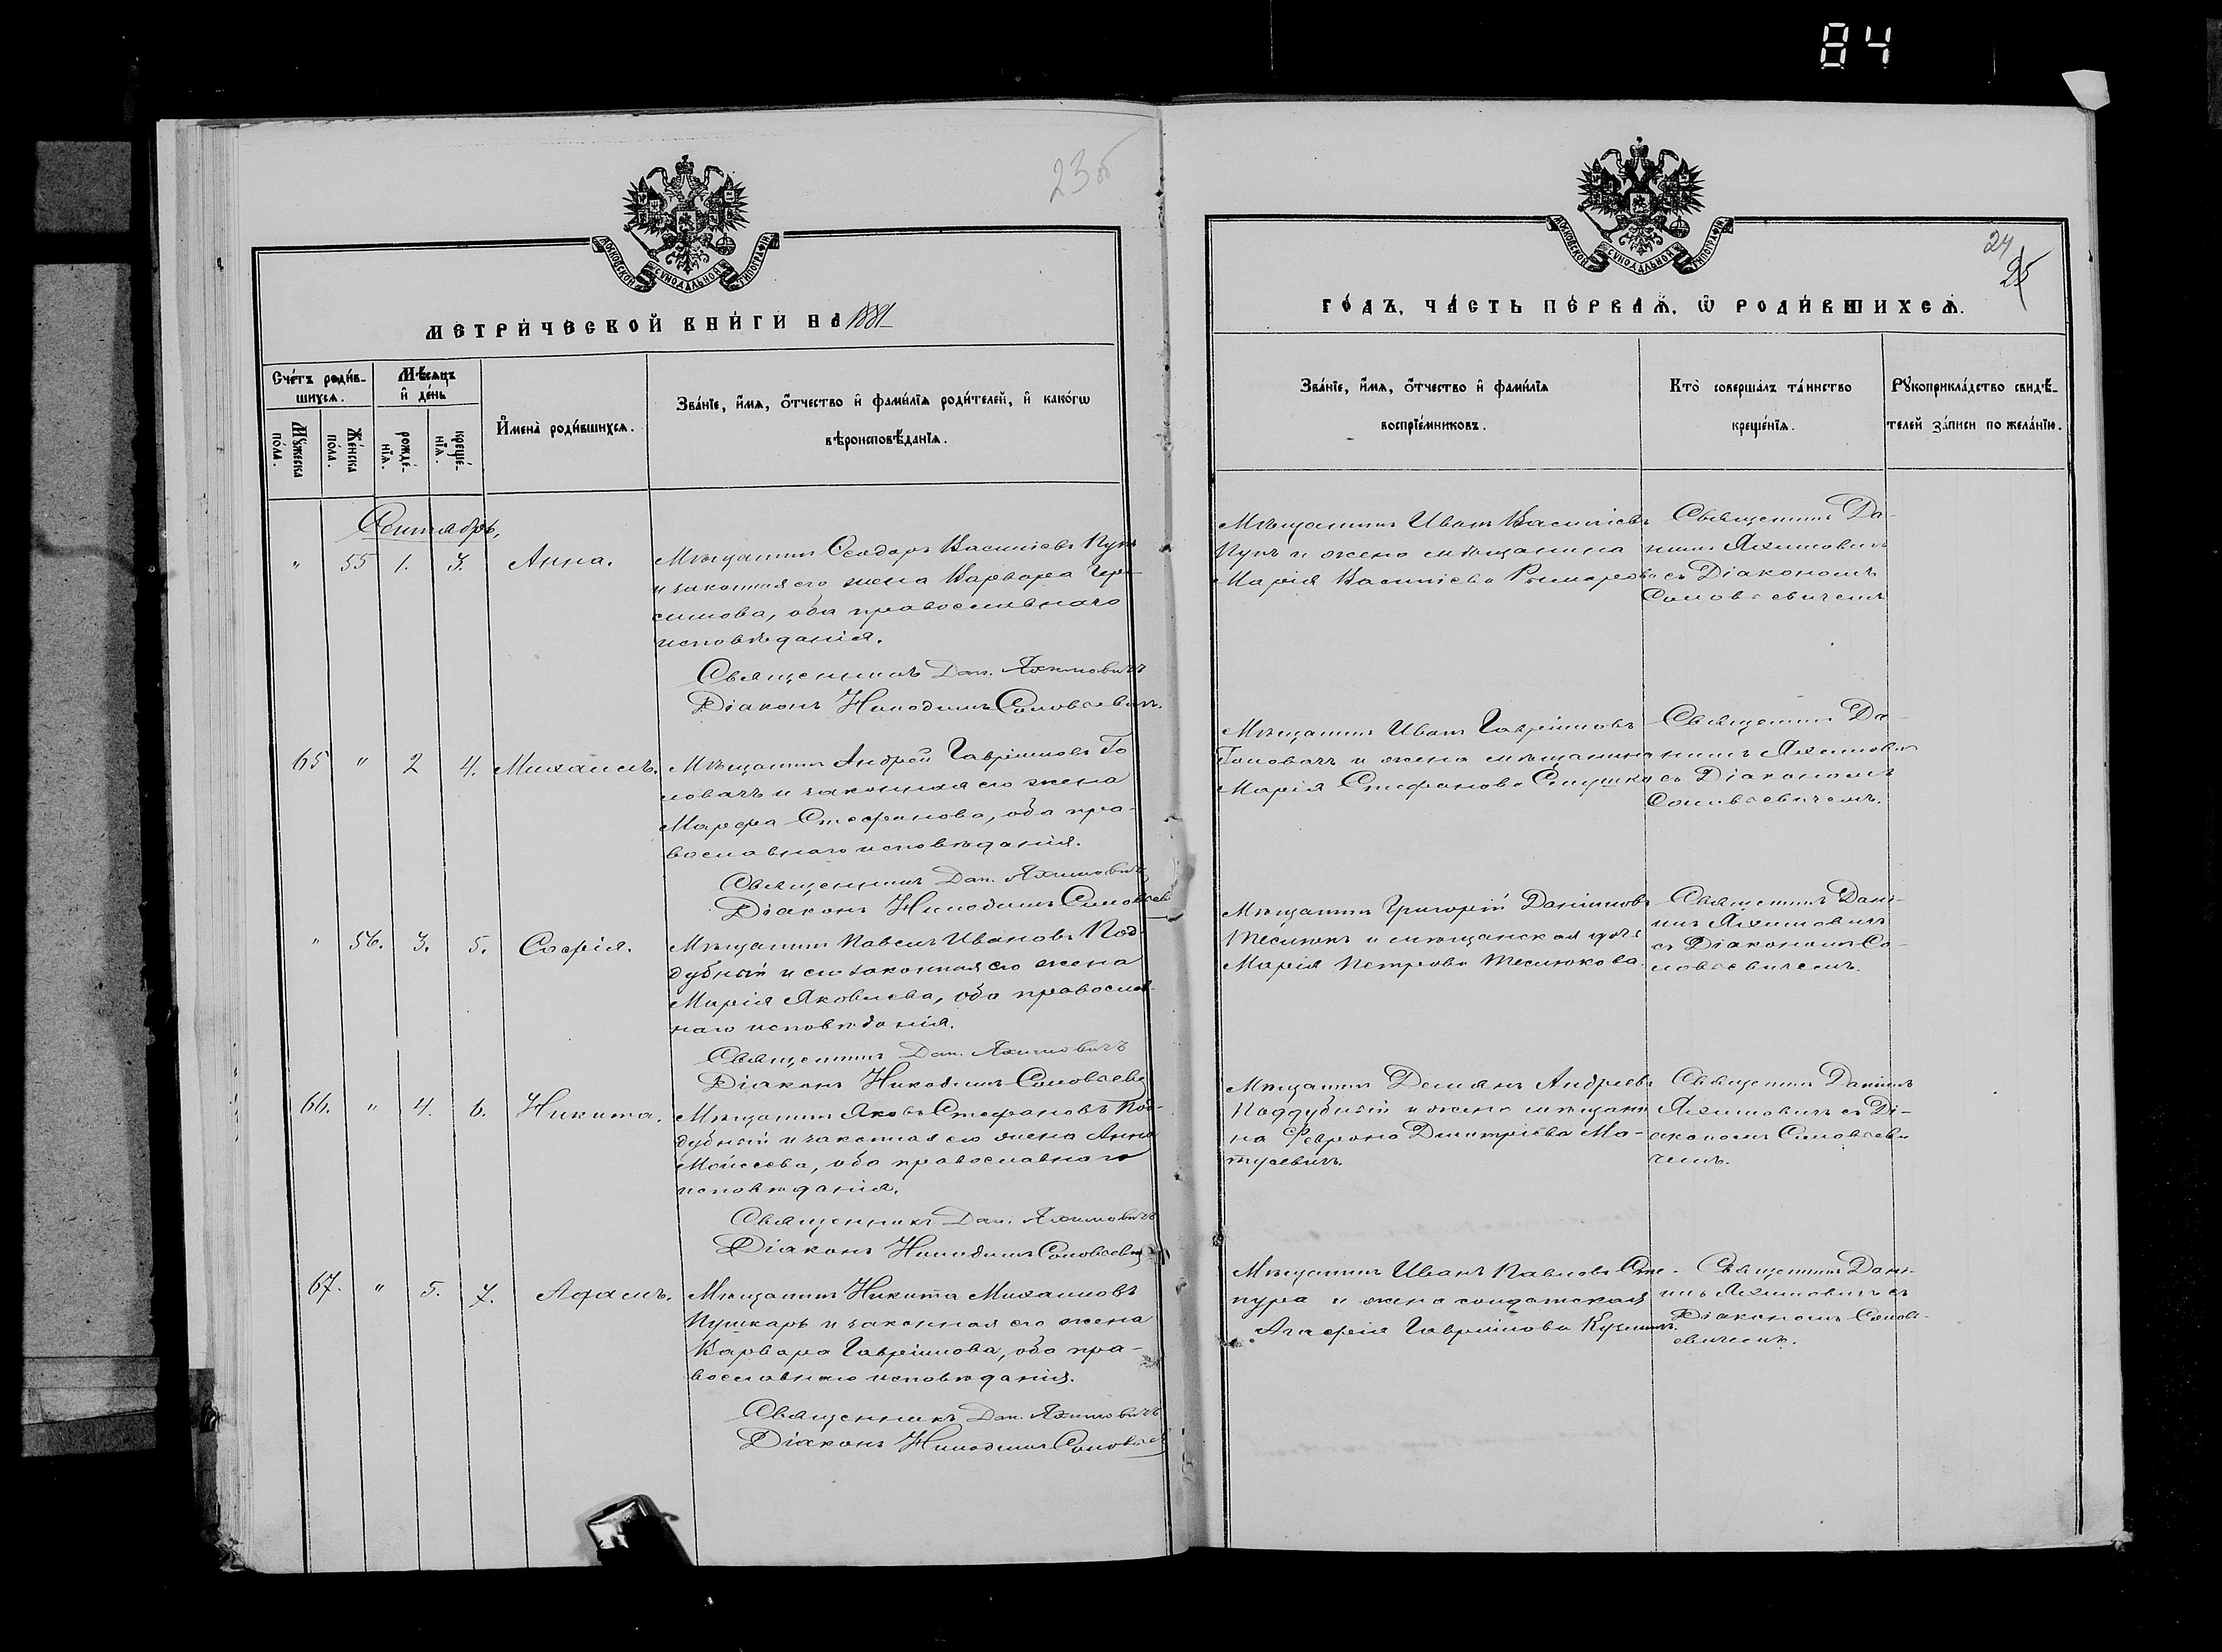 84
23 об
МОСКОВСКОЙ СѴНОДАЛЬНОЙ ТИПОГРАФІИ
МЕТРИ́ЧЕСКОЙ КНИ́ГИ НА 1881
Сче́тъ роди́в-
шихся.
Мѣсяцъ
и҆ де́нь
Мꙋ́жеска по́ла.
Же́нска по́ла.
рожде́-
нїѧ.
креще́-
нїѧ.
И҆мена̀ роди́вшихсѧ.
Зва́нїе, и҆́мѧ, ѻ҆́тчество и҆ фами́лїѧ роди́телей, и҆ како́гѡ
вѣроисповѣ́данїѧ.
Сентябрь,
" 55 1. 3. Анна.
Мѣщанинъ Ѳеодоръ Василіевъ Пупъ
и законная его жена Варвара Гера-
симова, оба православнаго
исповѣданія.
Священникъ Дан. Яхимовичъ
Діаконъ Никодимъ Соловьевичъ.
65 " 2 4. Михаилъ.
Мѣщанинъ Андрей Гавріиловъ Го
ловачъ и законная его жена
Марфа Стефанова, оба пра-
вославнаго исповѣданія.
Священникъ Дан. Яхимовичъ
Діаконъ Никодимъ Соловьев
" 56. 3. 5. Софія.
Мѣщанинъ Павелъ Ивановъ Под-
дубный и его законная его жена
Марія Яковлева, оба православ-
наго исповѣданія.
Священникъ Дан. Яхимовичъ
Діаконъ Никодимъ Соловьеви
66. " 4. 6. Никита.
Мѣщанинъ Яковъ Стефановъ Под-
дубный и законная его жена Анна
Моисеева, оба православнаго
исповѣданія.
Священникъ Дан. Яхимовичъ
Діаконъ Никодимъ Соловьевич
67. " 5. 7. Адамъ.
Мѣщанинъ Никита Михаиловъ
Пушкарь и законная его жена
Варвара Гавріилова, оба пра-
вославнаго исповѣданія.
Священникъ Дан. Яхимовичъ
Діаконъ Никодимъ Соловьев
24
25
МОСКОВСКОЙ СѴНОДАЛЬНОЙ ТИПОГРАФІИ
ГО́ДЪ, ЧА́СТЬ ПЕ́РВАѦ, Ѡ҆ РОДИ́ВШИХСѦ.
Зва́нїе, и҆́мѧ, ѻ҆́тчество и҆ фами́лїѧ
воспрїе́мниковъ.
Кто̀ соверша́лъ та́инство
креще́нїѧ.
Рꙋкоприкла́дство свидѣ́-
телей за́писи по жела́нїю.
Мѣщанинъ Иванъ Василіевъ
Пупъ и жена мѣщанина
Марія Василіева
Священникъ Да-
ніилъ Яхимовичъ
съ Діакономъ
Соловьевичемъ
Мѣщанинъ Иванъ Гавріиловъ
Головачъ и жена мѣщанина
Марія Стефанова
Священникъ Да-
ніилъ Яхимович
съ Діакономъ
Соловьевичемъ.
Мѣщанинъ Григорій Даніиловъ
Теслюкъ и мѣщанская дочь
Марія Петрова Теслюкова.
Священникъ Дані-
илъ Яхимовичъ
съ Діакономъ Со-
ловьевичемъ.
Мѣщанинъ Демянъ Андреевъ
Поддубный и жена мѣщани
на Феврона Дмитріева Ма-
тусевичъ.
Священникъ Даніилъ
Яхимовичъ съ Ді-
акономъ Соловьеви
чемъ.
Мѣщанинъ Иванъ Павловъ
и жена солдатская
Агафія Гавріилова
Священникъ Дані-
илъ Яхимовичъ съ
Діакономъ Соловь-
евичемъ.